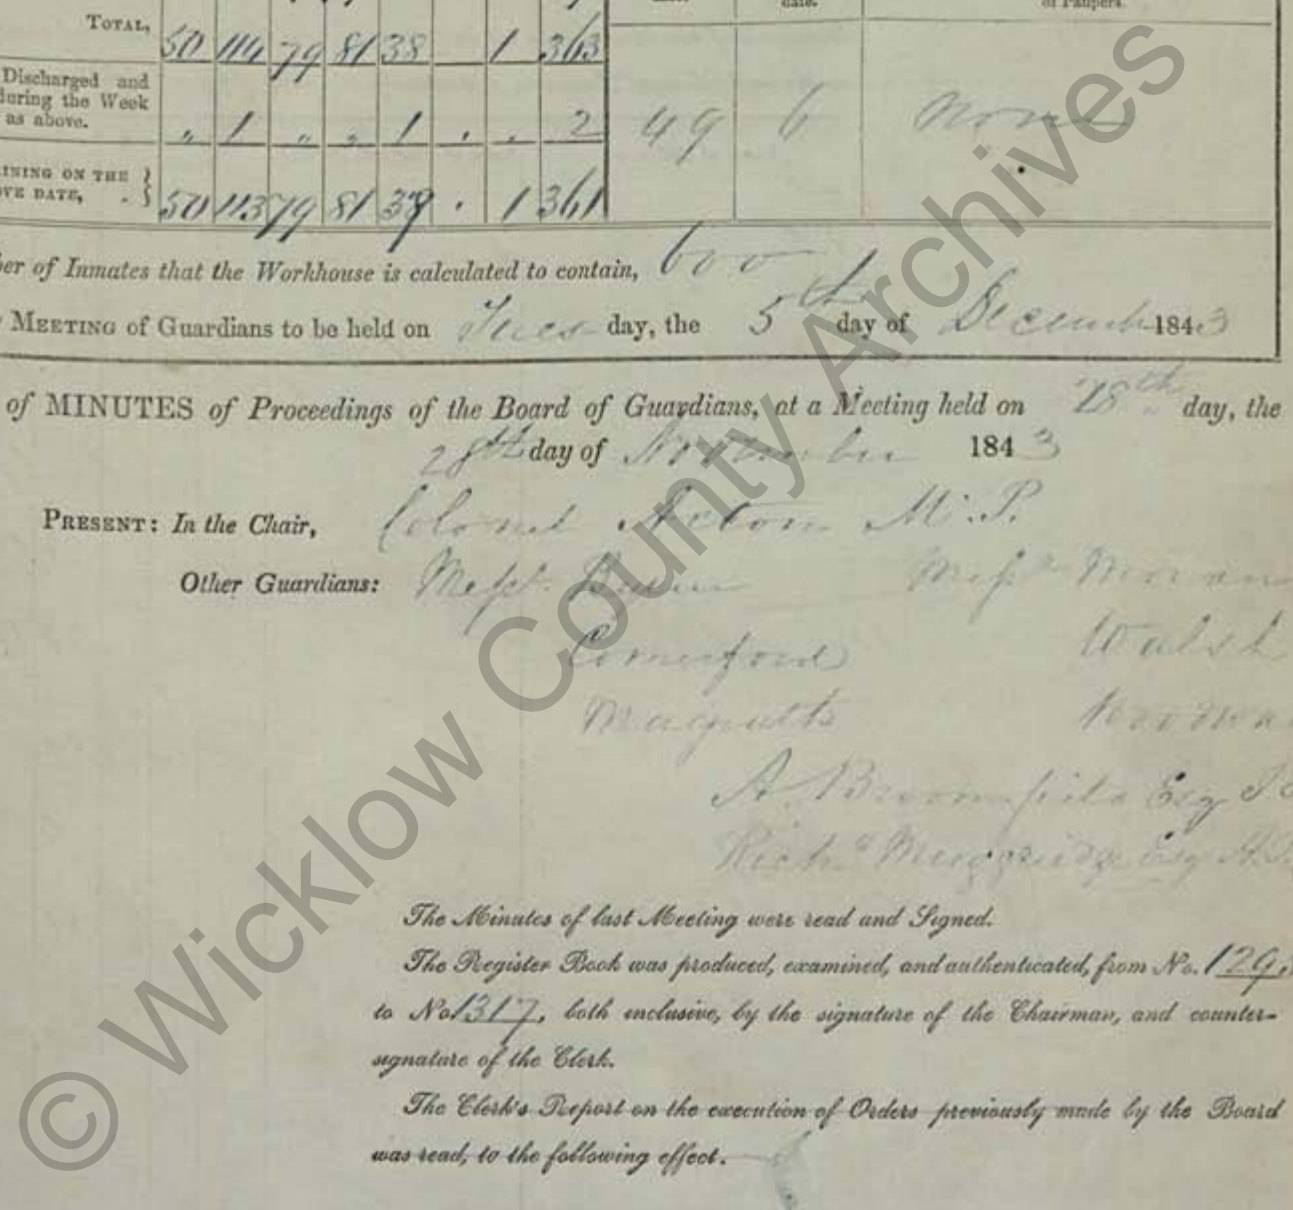 date. of Paupers.
TOTAL, 50 114 79 81 38 . 1 363
Discharged and
during the Week
as above. „ 1 „ „ 1 . . 2 49 6 None
INING ON THE
VE DATE, . 50 113 79 81 37 . 1 361
er of Inmates that the Workhouse is calculated to contain, 600
MEETING of Guardians to be held on Tues day, the 5th day of December 1843
of MINUTES of Proceedings of the Board of Guardians, at a Meeting held on 28th day, the
28th day of November 1843
PRESENT: In the Chair, Colonel Acton M.P.
Other Guardians: Messrs Messrs Moran
Comerford Walsh
Magutts
A. Broomfield Esq
Richd Muggeridge Esq
The Minutes of last Meeting were read and Signed.
The Register Book was produced, examined, and authenticated, from No. 129
to No 1317, both inclusive, by the signature of the Chairman, and counter-
signature of the Clerk.
The Clerk's Report on the execution of Orders previously made by the Board
was read, to the following effect.
© Wicklow County Archives